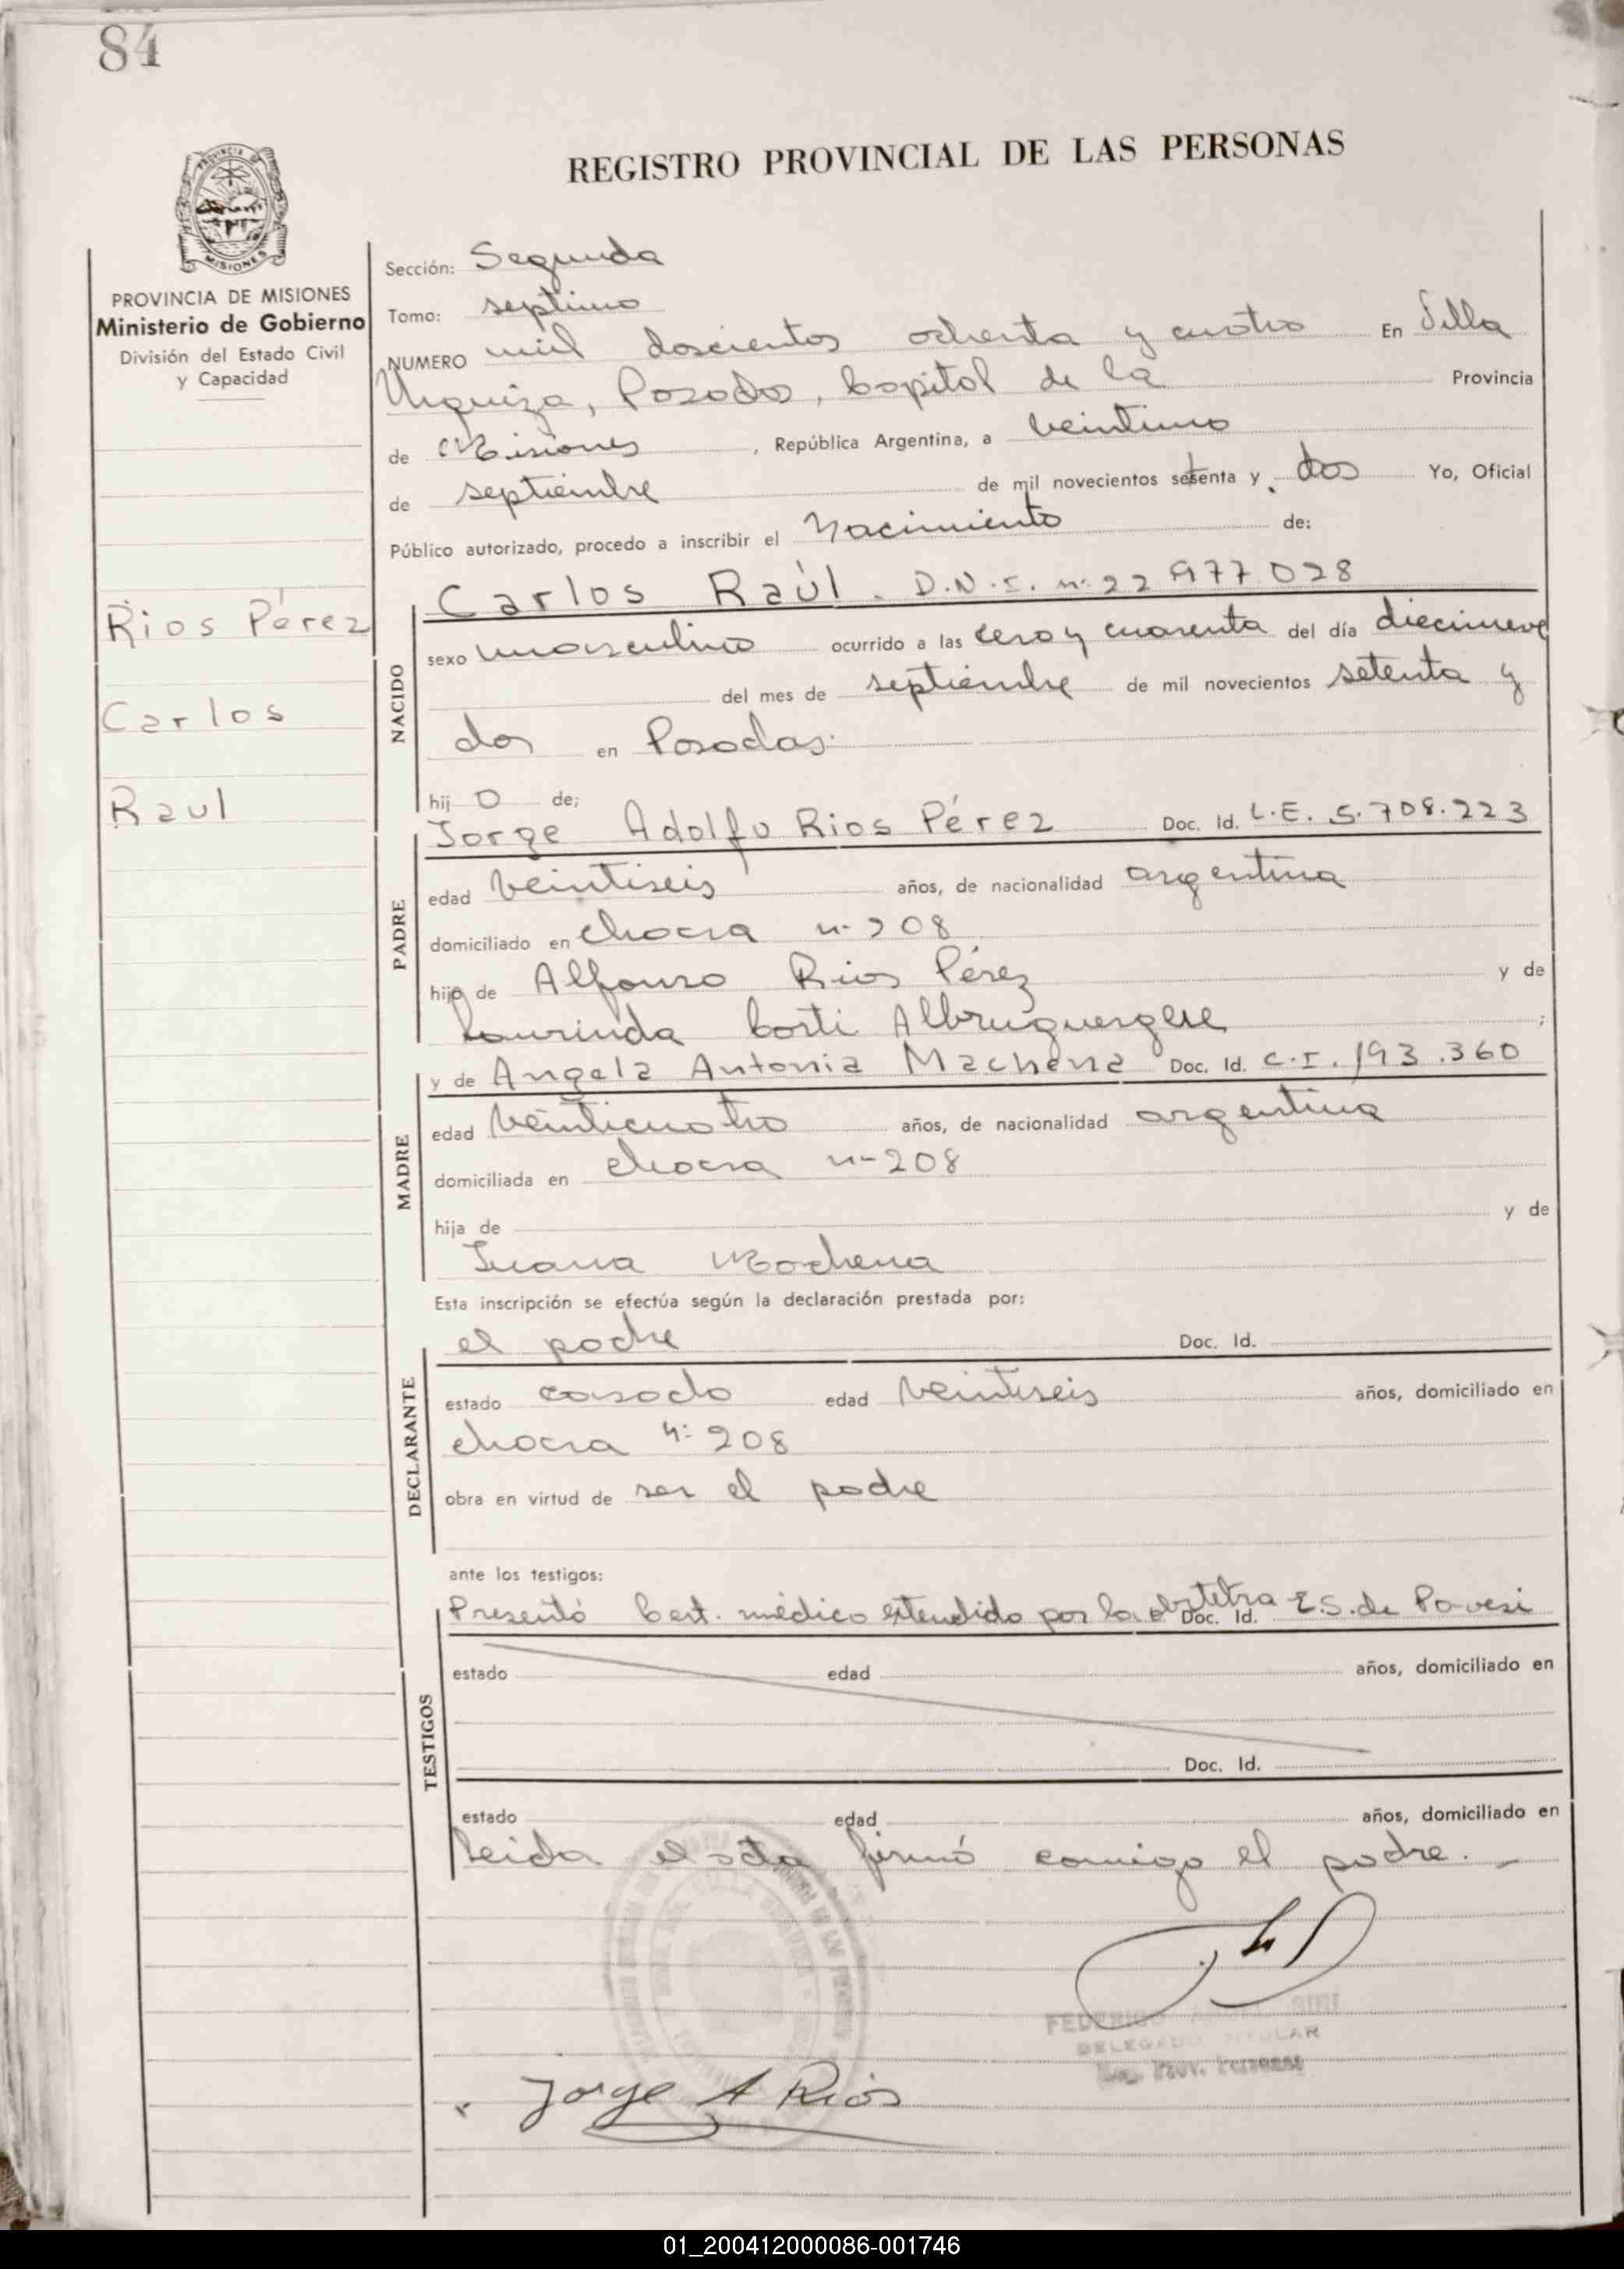 84
REGISTRO PROVINCIAL DE LAS PERSONAS
PROVINCIA DE MISIONES
MISIONES
PROVINCIA DE MISIONES
Ministerio de Gobierno
División del Estado Civil
y Capacidad
Rios Pérez
Carlos
Raul
Sección: Segunda
Tomo: septimo
NUMERO mil doscientos ochenta y cuatro En Villa
Urquiza, Posadas, Capital de la Provincia
de Misiones, República Argentina, a veintiuno
de septiembre de mil novecientos setenta y dos Yo, Oficial
Público autorizado, procedo a inscribir el Nacimiento de:
NACIDO
Carlos Raúl. D.N.I. nº 22 977.028
sexo masculino ocurrido a las cero y cuarenta del día diecinueve
del mes de septiembre de mil novecientos setenta y
dos en Posadas.
hij o de;
PADRE
Jorge Adolfo Rios Pérez Doc. Id. L.E. 5.708.223
edad veintiseis años, de nacionalidad argentina
domiciliado en chacra n- 208
hijo de Alfonso Rios Pérez y de
Laurinda Corti ;
MADRE
y de Angela Antonia Machena Doc. Id. C.I. 193.360
edad veinticuatro años, de nacionalidad argentina
domiciliada en chacra n- 208
hija de y de
Juana Machena
Esta inscripción se efectúa según la declaración prestada por:
DECLARANTE
el padre Doc. Id.
estado casado edad veintiseis años, domiciliado en
chacra nº 208
obra en virtud de ser el padre
ante los testigos:
TESTIGOS
Presentó Cert. médico extendido por la obstetra E.S. de Povesi
Doc. Id.
estado edad años, domiciliado en
Doc. Id.
estado edad años, domiciliado en
Leida el acta firmó conmigo el padre.
FEDERICO
DELEGADO TITULAR
Reg. Prov. Personas
Jorge A Rios
01_200412000086-001746